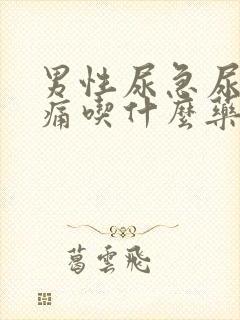 男性尿急尿
痛喫什麼藥
葛雲飛